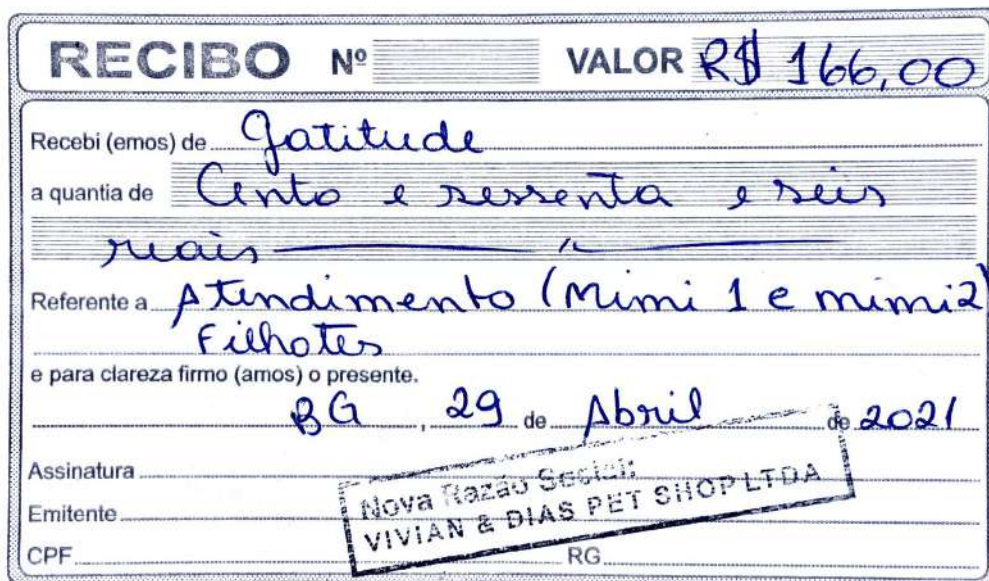 RECIBO Nº VALOR R$ 166,00
Recebi (emos) de Gatitude
a quantia de Cento e sessenta e seis
reais
Referente a Atendimento (Mimi 1 e mimi2)
Filhotes
e para clareza firmo (amos) o presente.
BG, 29 de Abril de 2021
Assinatura
Nova Razão Social:
Emitente
VIVIAN & DIAS PET SHOP LTDA
CPF RG